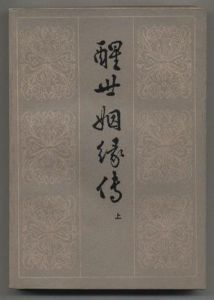 醒世姻缘传
上